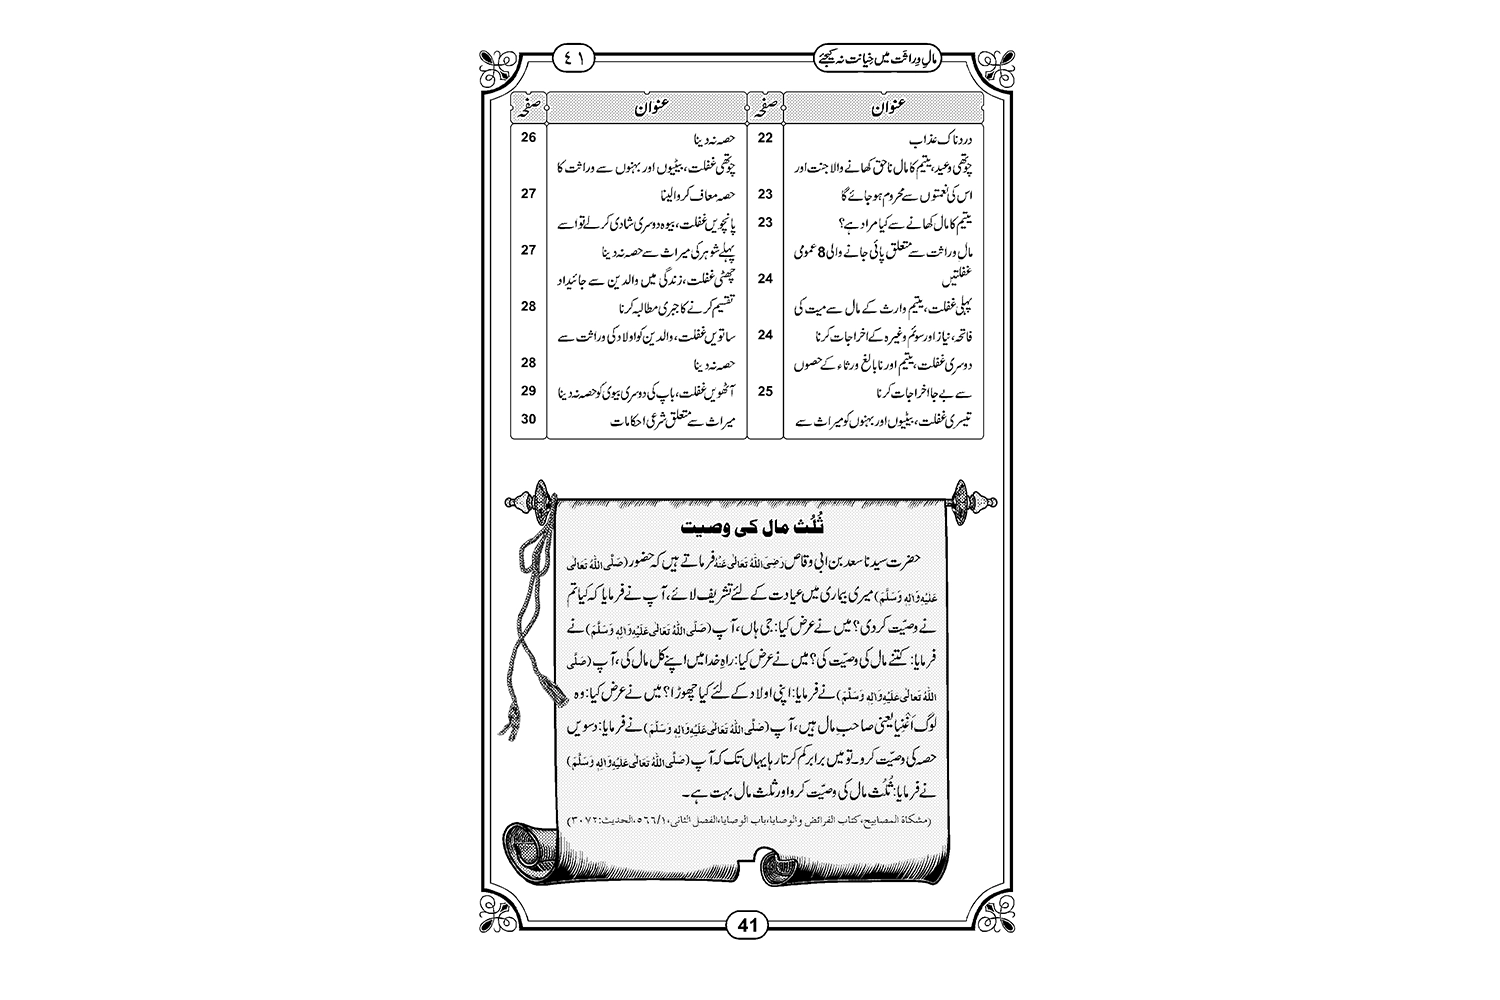 مالِ وِراثَت میں خِیانت نہ کیجئے
٤١
عنوان
صفحہ
دردناک عذاب
22
چوتھی وعید، یتیم کا مال ناحق کھانے والا جنت اور
اس کی نعمتوں سے محروم ہوجائے گا
23
یتیم کا مال کھانے سے کیا مراد ہے؟
23
مال وراثت سے متعلق پائی جانے والی 8 عمومی
غفلتیں
24
پہلی غفلت، یتیم وارث کے مال سے میت کی
فاتحہ، نیاز اور سوئم وغیرہ کے اخراجات کرنا
24
دوسری غفلت، یتیم اور نابالغ ورثاء کے حصوں
سے بے جا اخراجات کرنا
25
تیسری غفلت، بیٹیوں اور بہنوں کو میراث سے
عنوان
صفحہ
حصہ نہ دینا
26
چوتھی غفلت، بیٹیوں اور بہنوں سے وراثت کا
حصہ معاف کروالینا
27
پانچویں غفلت، بیوہ دوسری شادی کرلے تو اسے
پہلے شوہر کی میراث سے حصہ نہ دینا
27
چھٹی غفلت، زندگی میں والدین سے جائیداد
تقسیم کرنے کا جبری مطالبہ کرنا
28
ساتویں غفلت، والدین کو اولاد کی وراثت سے
حصہ نہ دینا
28
آٹھویں غفلت، باپ کی دوسری بیوی کو حصہ نہ دینا
29
میراث سے متعلق شرعی احکامات
30
ثُلُث مال کی وصیت
حضرت سیدنا سعد بن ابی وقاص رَضِیَ اللہُ تَعَالٰی عَنْہُ فرماتے ہیں کہ حضور (صَلَّی اللہُ تَعَالٰی
عَلَیْہِ وَاٰلِہٖ وَسَلَّمَ) میری بیماری میں عیادت کے لئے تشریف لائے، آپ نے فرمایا کہ کیا تم
نے وصیّت کردی؟ میں نے عرض کیا: جی ہاں، آپ (صَلَّی اللہُ تَعَالٰی عَلَیْہِ وَاٰلِہٖ وَسَلَّمَ) نے
فرمایا: کتنے مال کی وصیّت کی؟ میں نے عرض کیا: راہِ خدا میں اپنے کل مال کی، آپ (صَلَّی
اللہُ تَعَالٰی عَلَیْہِ وَاٰلِہٖ وَسَلَّمَ) نے فرمایا: اپنی اولاد کے لئے کیا چھوڑا؟ میں نے عرض کیا: وہ
لوگ اَغْنِیا یعنی صاحبِ مال ہیں، آپ (صَلَّی اللہُ تَعَالٰی عَلَیْہِ وَاٰلِہٖ وَسَلَّمَ) نے فرمایا: دسویں
حصہ کی وصیّت کرو۔ تو میں برابر کم کرتا رہا یہاں تک کہ آپ (صَلَّی اللہُ تَعَالٰی عَلَیْہِ وَاٰلِہٖ وَسَلَّمَ)
نے فرمایا: ثُلُث مال کی وصیّت کرو اور ثلث مال بہت ہے۔
(مشکاۃ المصابیح، کتاب الفرائض والوصایا، باب الوصایا، الفصل الثانی، ۱/۵۶۶، الحدیث: ۳۰۷۲)
41